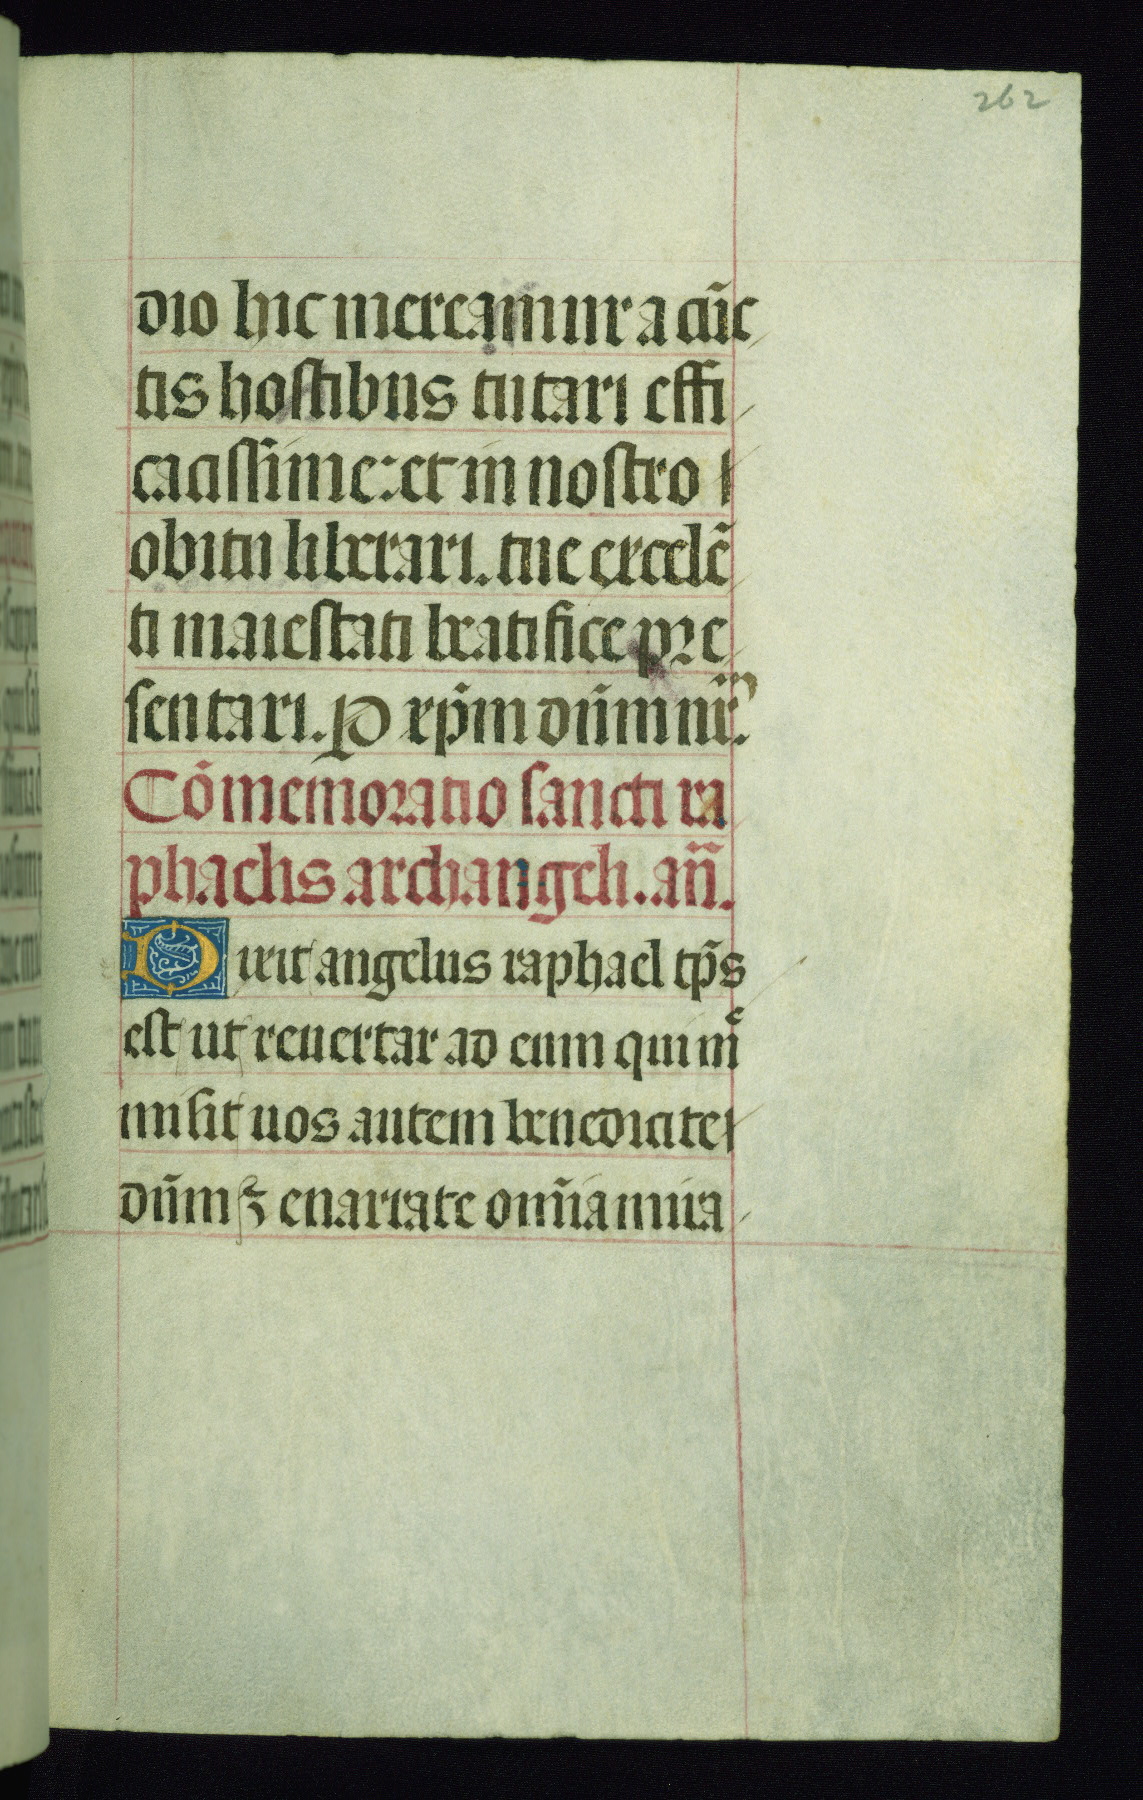 262
dio hic mereamur a cūc
tis hostibus tutari effi
cacissime: et in nostro
obitu liberari. tue excelē
ti maiestati beatifice pre
sentari. P xp̄m dn̄m nr̄m.
Cōmemoratio sancti ra
phaelis archangeli. an̄.
Dixit angelus raphael tp̄s
est ut reuertar ad eum qui mͤ
misit uos autem benedicite
dn̄m ⁊ enarrate om̄ia mira